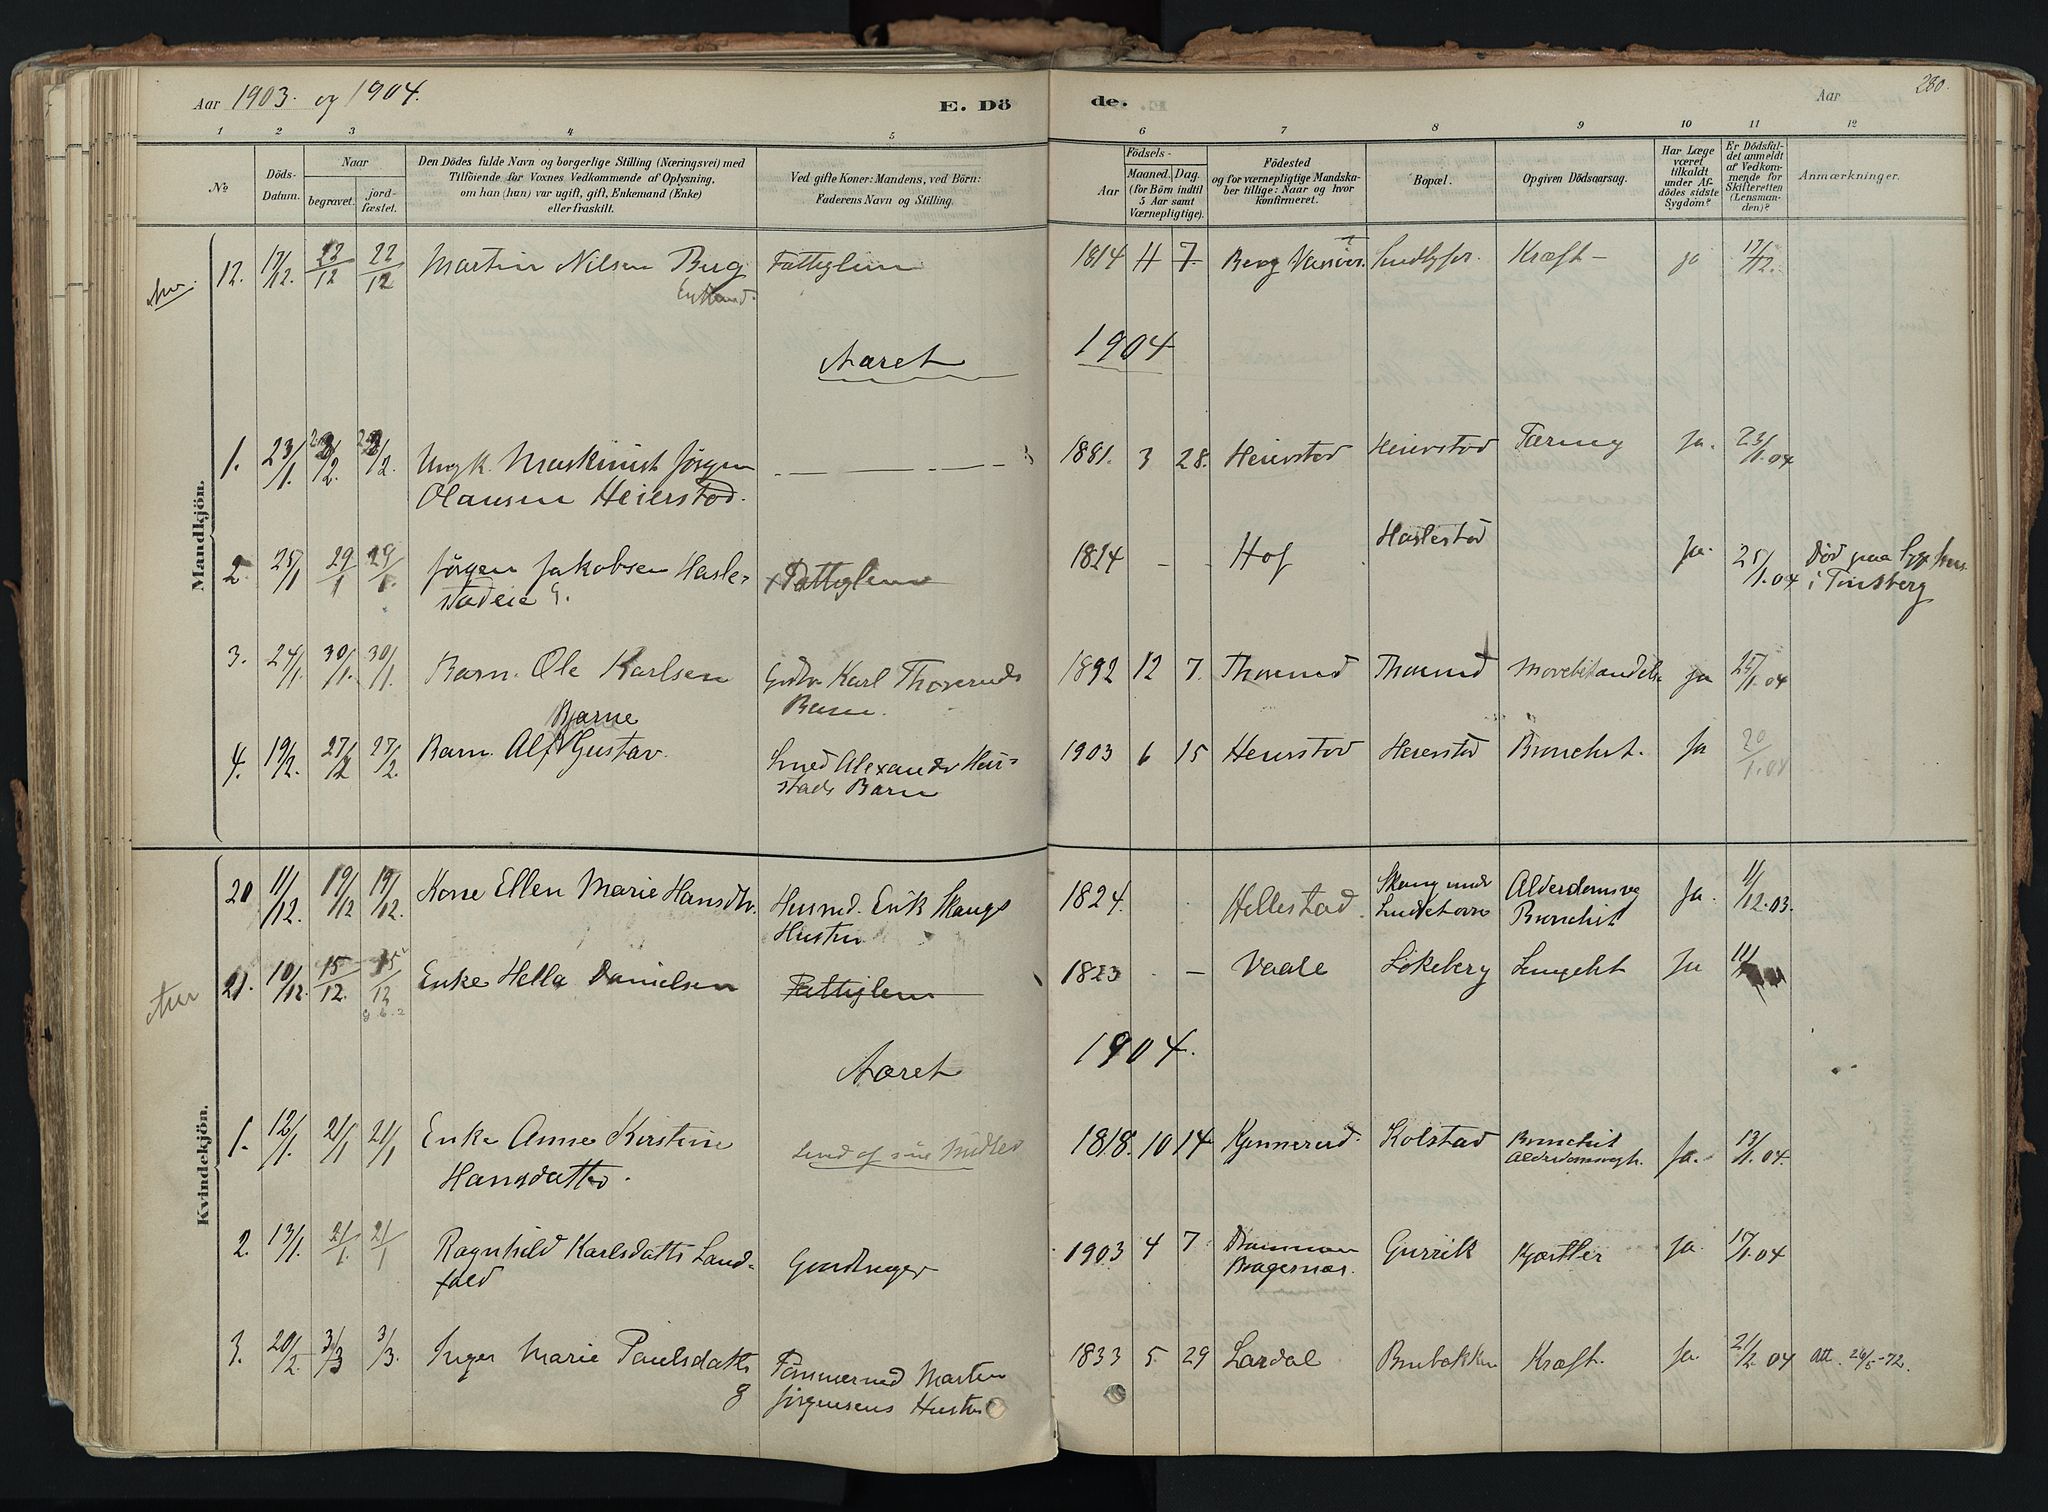 Aar 1903. og 1904.
E. Dö
de.
Aar
280.
1 2 3 4 5 6 7 8 9 10 11 12
No
Döds-
Datum.
Naar
begravet.
jord-
fæstet.
Den Dödes fulde Navn og borgerlige Stilling (Næringsvei) med
Tilföiende for Voxnes Vedkommende af Oplysning,
om han (hun) var ugift, gift, Enkemand (Enke)
eller fraskilt.
Ved gifte Koner: Mandens, ved Börn:
Faderens Navn og Stilling.
Födsels-
Aar
Maaned. Dag.
(for Börn indtil
5 Aar samt
Værnepligtige).
Födested
og for værnepligtige Mandska-
ber tillige: Naar og hvor
konfirmeret.
Bopæl.
Opgiven Dödsaarsag.
Har Læge
været
tilkaldt
under Af-
dödes sidste
Sygdom?
Er Dödsfal-
det anmeldt
af Vedkom-
mende for
Skifteretten
(Lensman-
den)?
Anmærkninger.
Mandkjön.
12. 17/12. 22/12 22/12 Martin Nilsen Berg Fattiglem 1814 11 7. Berg Kræft — ja 17/12.
Aaret 1904
1. 23/1. Ungk. Maskinist Jörgen 1881. 3 28. Heierstad Heierstad Tæring Ja. 23/1.04
Olausen Heierstad.
2. 25/1 29/1 29/1. Jörgen Jakobsen Hasle- Fattiglem 1824 — — Hof Haslestad Ja. 25/1.04 Död paa
stadeie i Tönsberg
3. 24/1. 30/1. 30/1. Barn. Ole Karlsen Gdbr. Karl Thoreruds 1892 12 7. Thorerud Thorerud ja 25/1.04
Barn.
Bjarne
4. 19/2. 27/2 27/2. Barn. Alf Gustav. Smed Alexander Heier- 1903 6 15 Heierstad Heierstad Bronchit. Ja 20/1.04
stads Barn
Kvindekjön.
20 11/12. 19/12 19/12. Kone Ellen Marie Hansdtr. Husmd. Erik Skaugs 1824. Hellestad. Skaug under Alderdomsvæ Ja. 11/12.03.
Hustru Bronchit
21. 10/12. 15/12. 15/12 Enke Hella Danielsen Fattiglem 1823 — — Vaale Lökeberg Ja
Aaret 1904.
1. 12/1. 21/1 21/1 Enke Anne Kirstine Levnd af sine Midler 1818. 10 14 Gjennerud. Kolstad Bronchit Ja. 13/1.04.
Hansdatter. Alderdomsvgh.
2. 13/1. 21/1. 21/1 Ragnhild Karlsdatter Land- 1903 4 7 Drammen ja. 17/1.04
fald Gaardbruger Bragernæs.
3. 20/2. 3/3 3/3. Inger Marie Paulsdatter Tömmermd Marten 1833 5. 29 Lardal Brubakken Kræft. Ja 21/2.04 Att. 26/5-72.
g Jörgensens Hustru